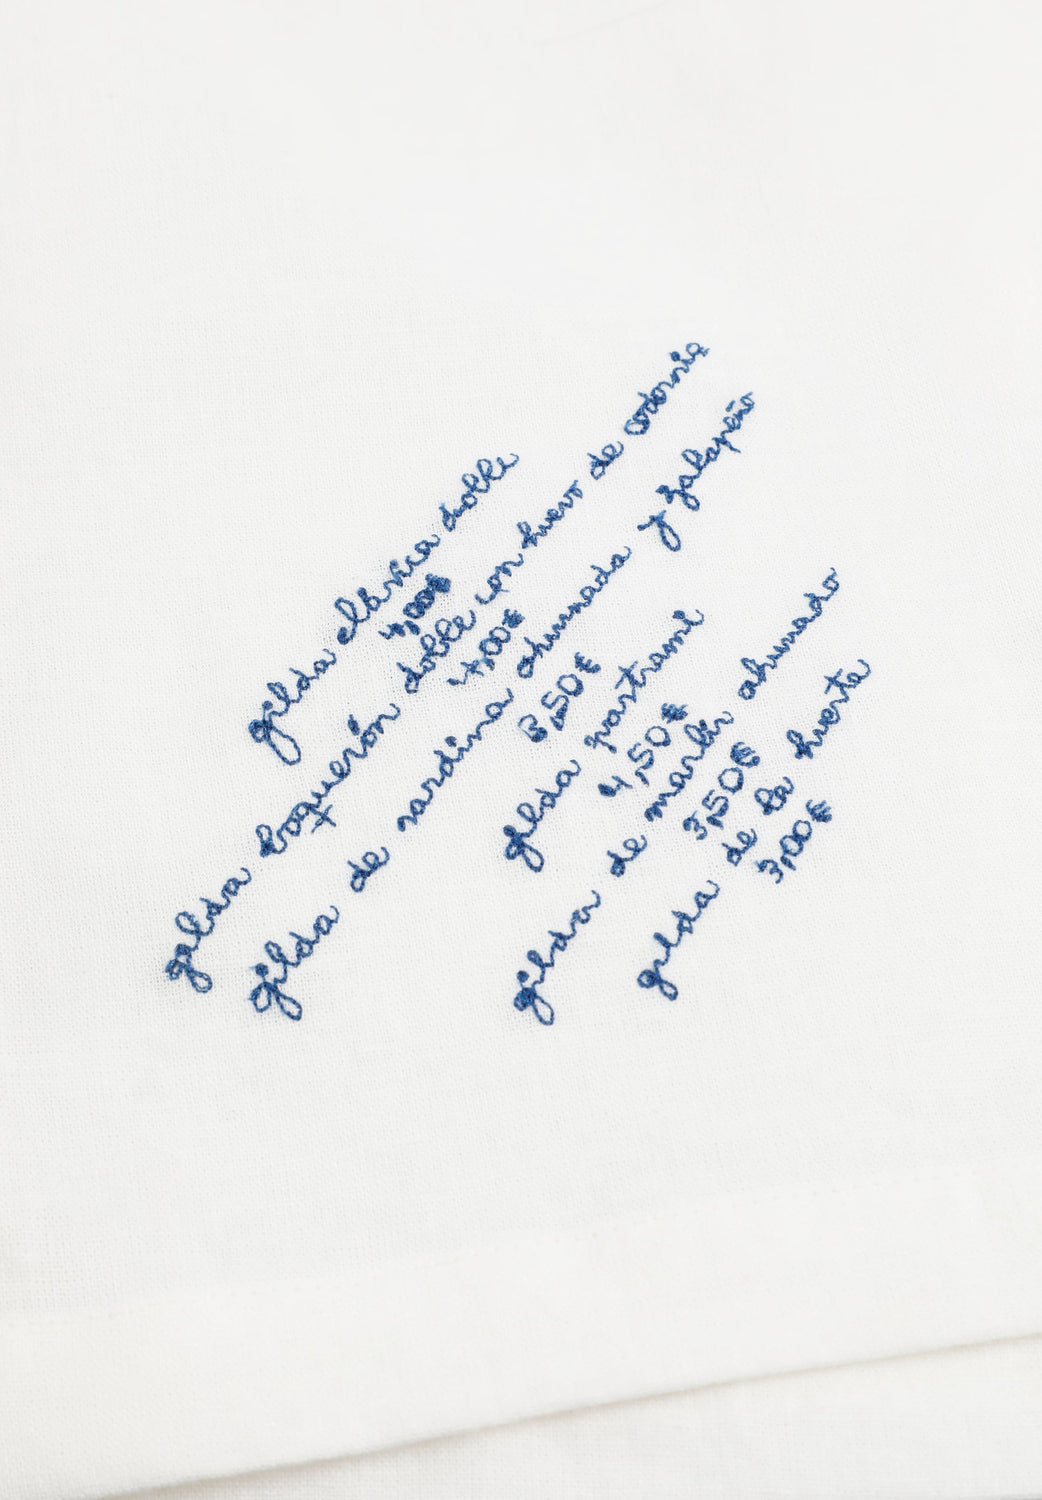 gilda clásica doble
4,00€
gilda boquerón doble con huevo de codorniz
4,00€
gilda de sardina ahumada y jalapeño
3,50€
gilda pastrami
4,50€
gilda de marlín ahumado
3,50€
gilda de la huerta
3,00€